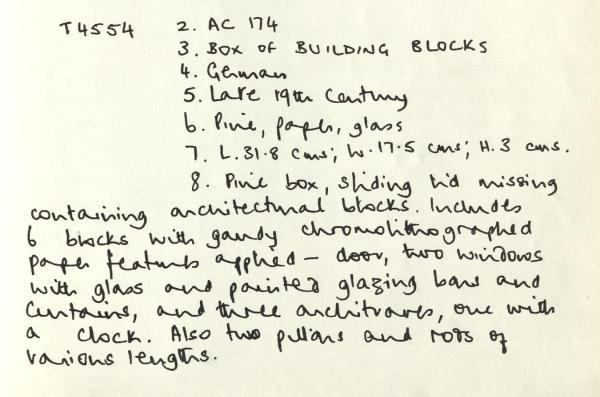 T4554 2. AC 174
3. BOX OF BUILDING BLOCKS
4. German
5. Late 19th Century
6. Pine, paper, glass
7. L. 31.8 cms; W. 17.5 cms; H. 3 cms.
8. Pine box, sliding lid missing
containing architectural blocks. Includes
6 blocks with gaudy chromolithographed
paper features applied – door, two windows
with glass and painted glazing bars and
curtains, and three architraves, one with
a clock. Also two pillars and roofs of
various lengths.